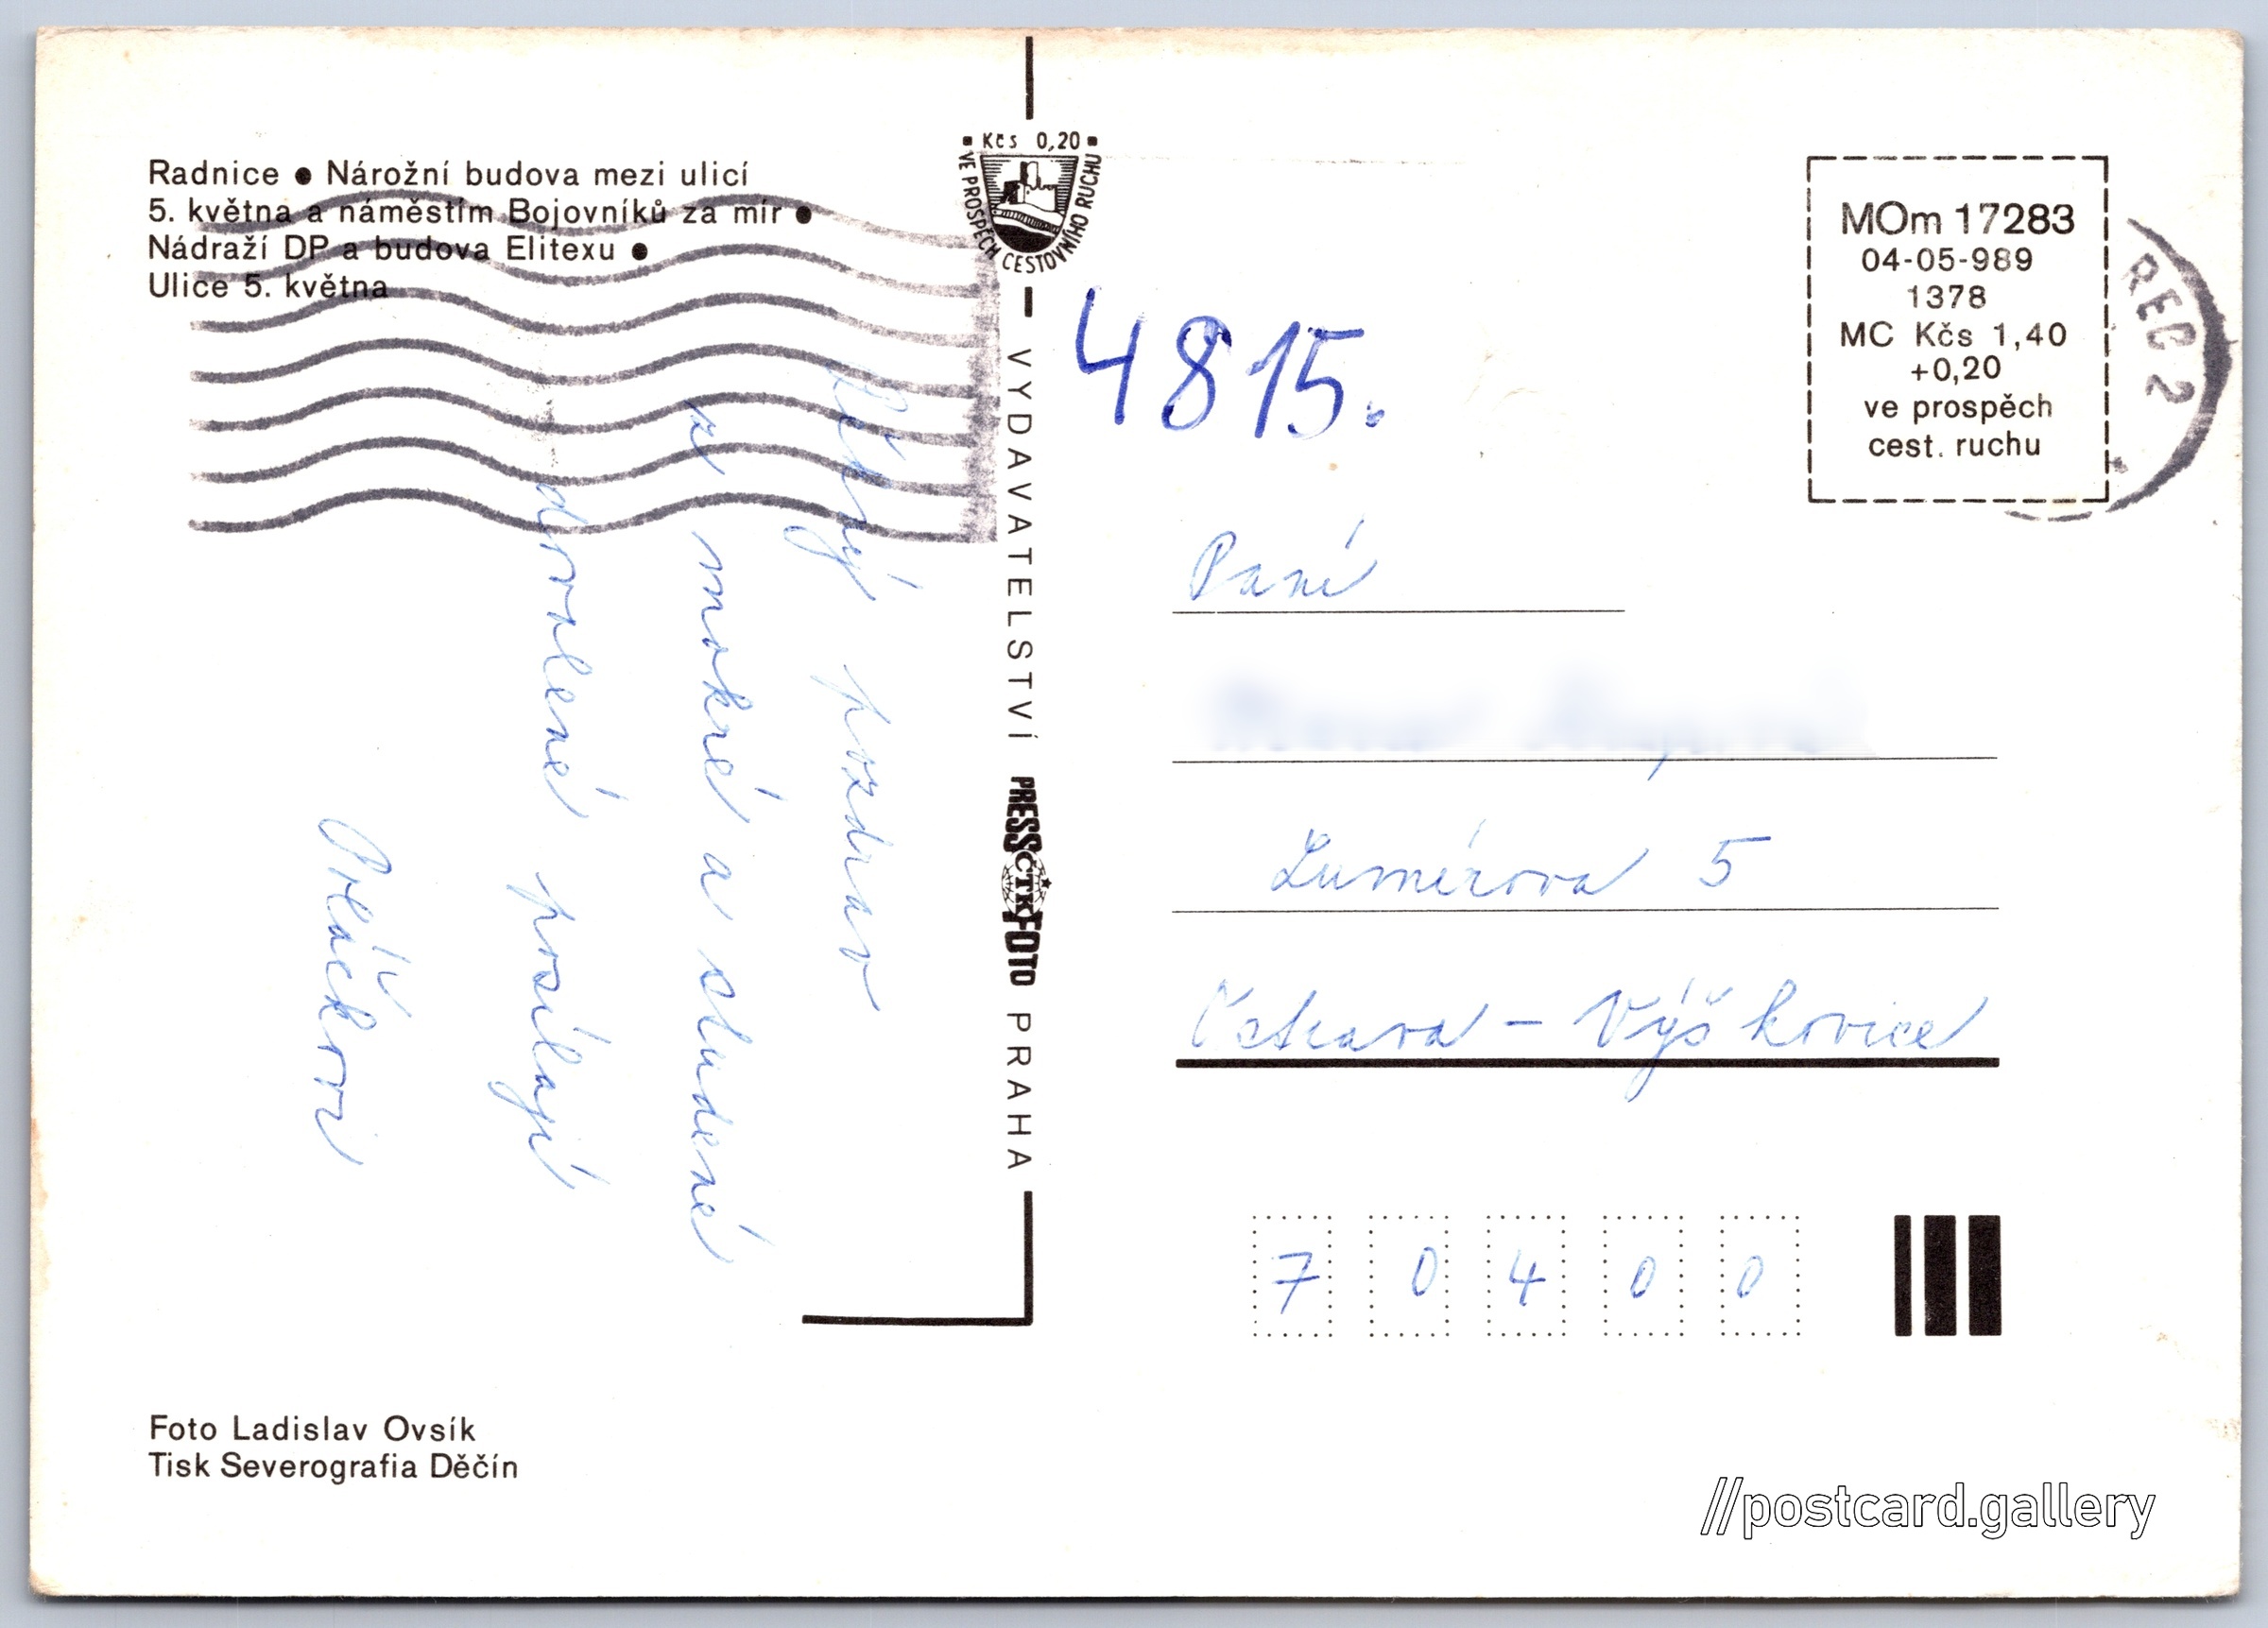 Radnice ● Nárožní budova mezi ulicí
5. května a náměstím Bojovníků za mír ●
Nádraží DP a budova Elitexu ●
Ulice 5. května
Kčs 0,20
VE PROSPĚCH CESTOVNÍHO RUCHU
VYDAVATELSTVÍ PRESSFOTO PRAHA
ČTK
4815.
MOm 17283
04-05-989
1378
MC Kčs 1,40
+0,20
ve prospěch
cest. ruchu
REC 2
Pěkný pozdrav
z mokré a studené
dovolené posílají
Ptáčkovi
Paní
Lumírova 5
Ostrava - Výškovice
7 0 4 0 0
Foto Ladislav Ovsík
Tisk Severografia Děčín
//postcard.gallery